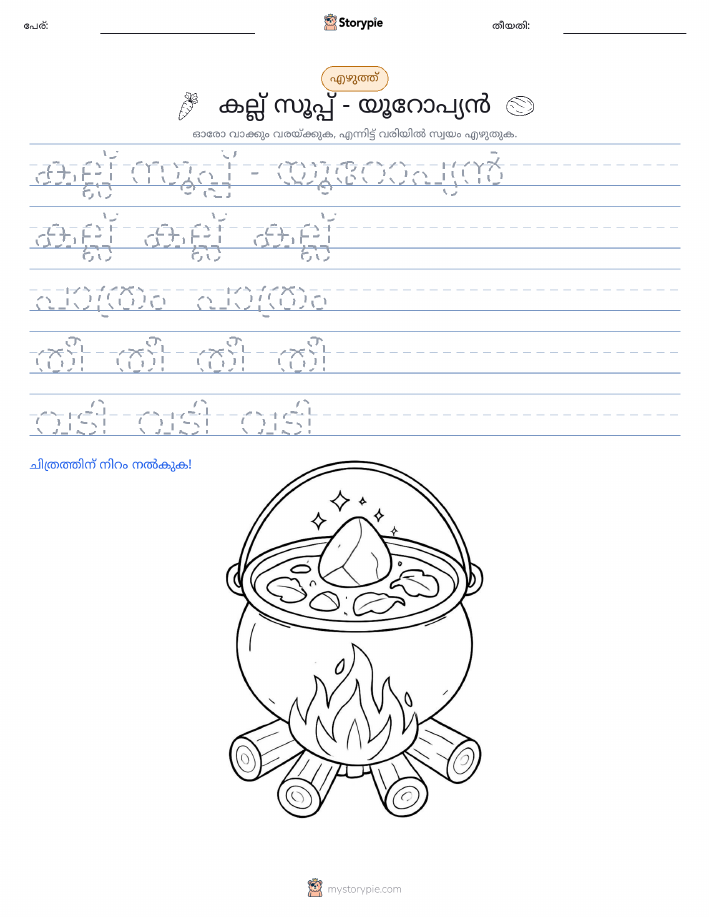 പേര്:
Storypie
തീയതി:
എഴുത്ത്
കല്ല് സൂപ്പ് - യൂറോപ്യൻ
ഓരോ വാക്കും വരയ്ക്കുക, എന്നിട്ട് വരിയിൽ സ്വയം എഴുതുക.
കല്ല് സൂപ്പ് - യൂറോപ്യൻ
കല്ല് കല്ല് കല്ല്
പാത്രം പാത്രം
തീ തീ തീ തീ
വടി വടി വടി
ചിത്രത്തിന് നിറം നൽകുക!
mystorypie.com